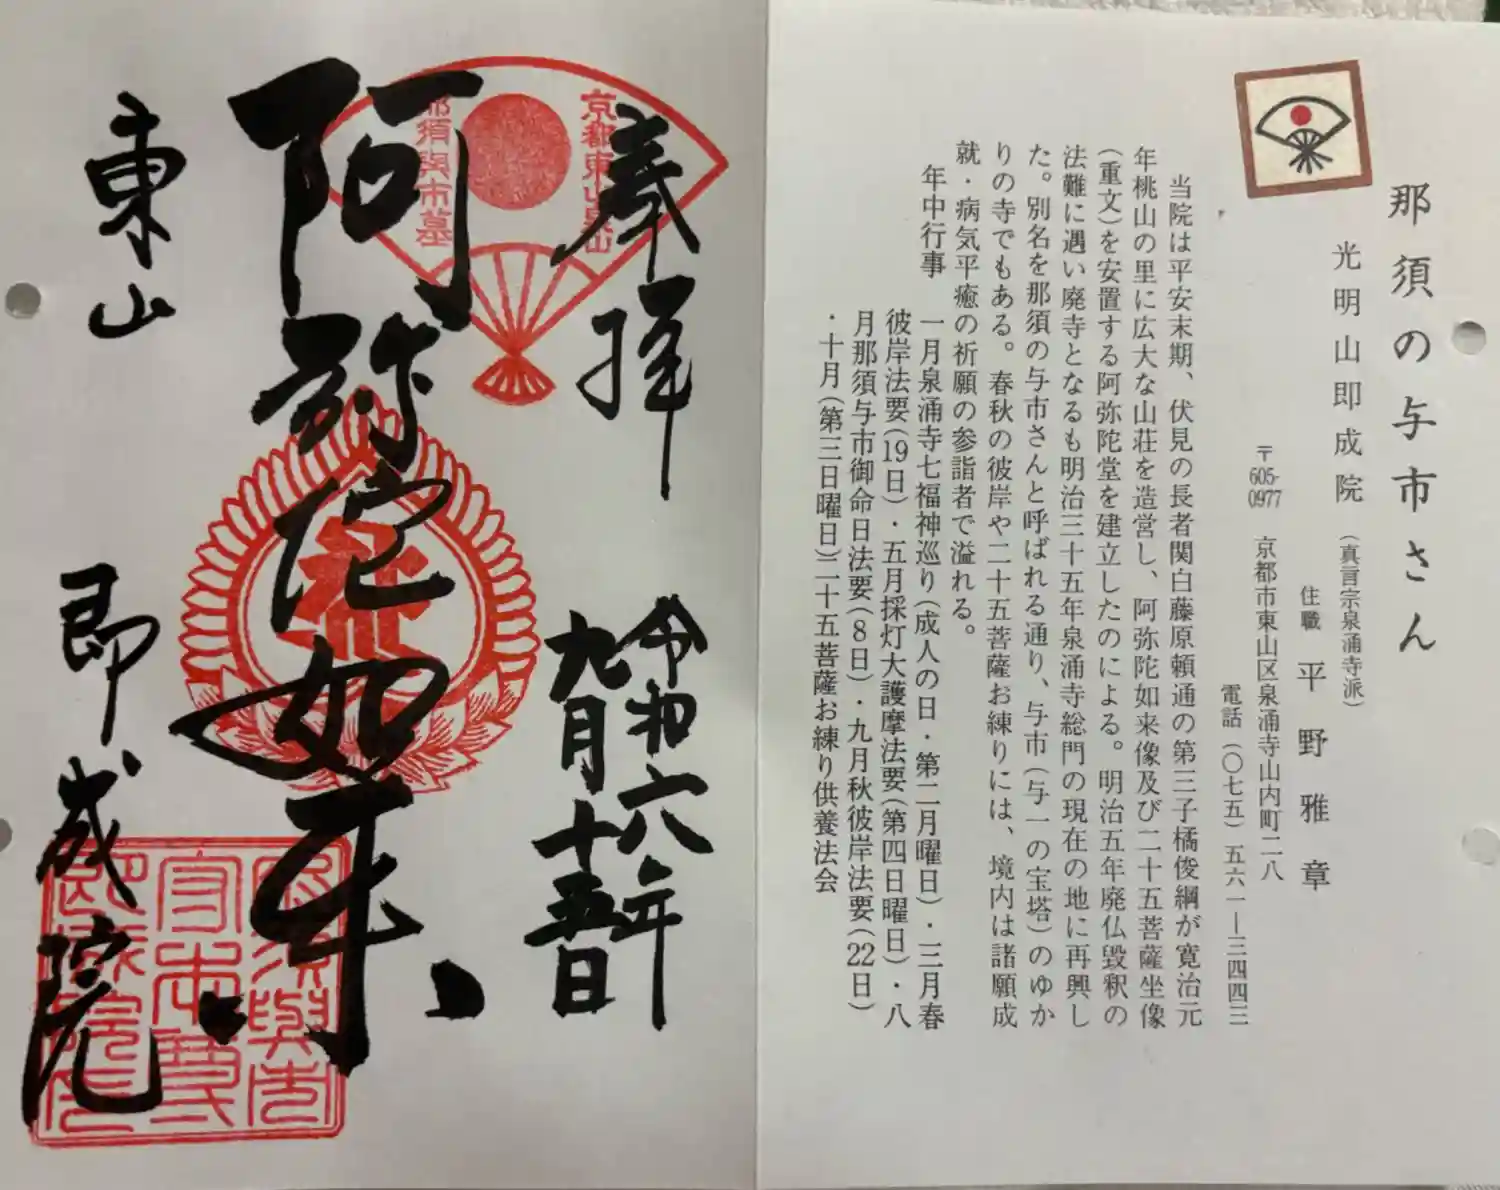 那須の与市さん
光明山即成院（真言宗泉涌寺派）
住職 平野雅章
〒605-0977 京都市東山区泉涌寺山内町二八
電話（〇七五）五六一―三四四三
当院は平安末期、伏見の長者関白藤原頼通の第三子橘俊綱が寛治元
年桃山の里に広大な山荘を造営し、阿弥陀如来像及び二十五菩薩坐像
（重文）を安置する阿弥陀堂を建立したのによる。明治五年廃仏毀釈の
法難に遇い廃寺となるも明治三十五年泉涌寺総門の現在の地に再興し
た。別名を那須の与市さんと呼ばれる通り、与市（与一の宝塔）のゆか
りの寺でもある。春秋の彼岸や二十五菩薩お練りには、境内は諸願成
就・病気平癒の祈願の参詣者で溢れる。
年中行事 一月泉涌寺七福神巡り（成人の日・第二月曜日）・三月春
彼岸法要（19日）・五月採灯大護摩法要（第四日曜日）・八
月那須与市御命日法要（8日）・九月秋彼岸法要（22日）
・十月（第三日曜日）二十五菩薩お練り供養法会
奉拝
令和六年
九月十五日
京都東山泉山
那須與市墓
阿弥陀如来
東山
即成院